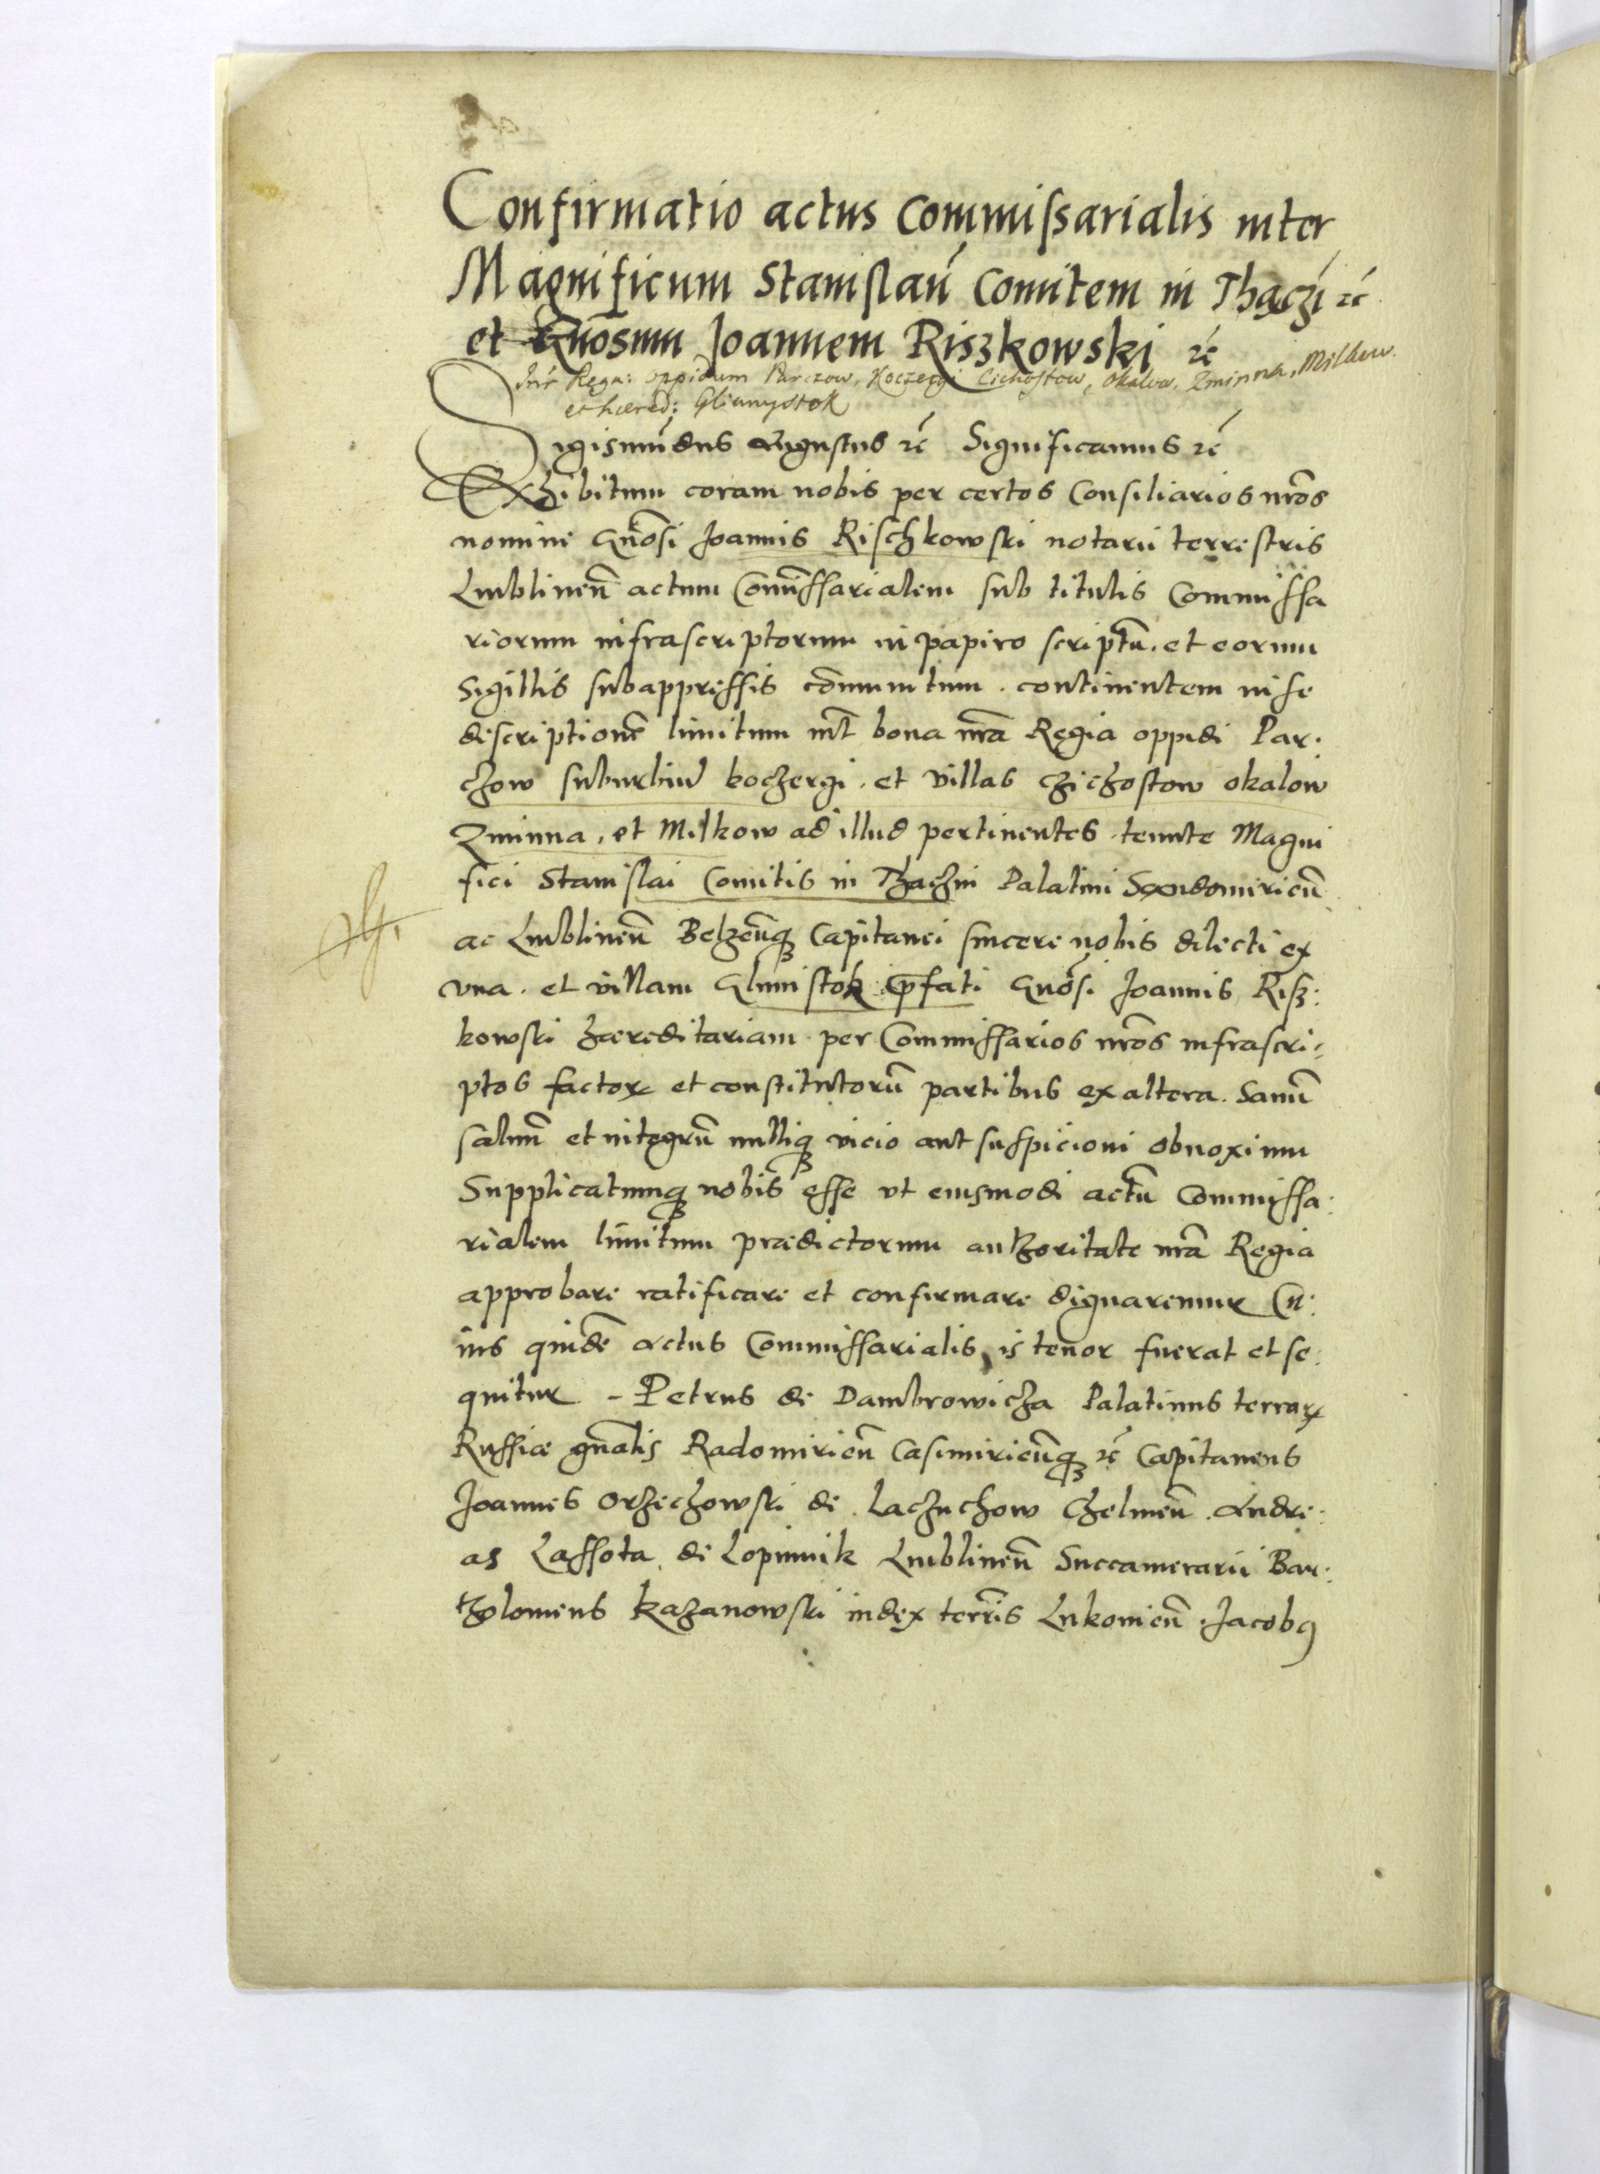 Confirmatio actus Commissarialis inter
Magnificum Stanislaũ Comitem in Thaczĩ ꝛc̃
et Gnõsum Joannem Riszkowski ꝛc̃
Intr Regn: oppidum Parczow, Koczergi Cichostow, Okalow, Zminna, Milkow.
et hæred: Gliinnystok
Sigismũdus Augustus ꝛc̃ Significamus ꝛc̃
Exhibitum coram nobis per certos Consiliarios nrõs
nomine Gnõsi Joannis Rischkowski notarii terrestris
Lublineñ actum Com̃issarialem sub titulis Commissa
riorum infrascriptorum in papiro scriptũ. et eorum
Sigillis subappressis cõmunitum. continentem in se
descriptionẽ limitum int̃ bona nr̃a Regia oppidi Par.
chow suburbiũ koczergi. et villas Czichostow okalow
Zminna, et Milkow ad illud pertinentes. tenutæ Magni
fici Stanislai Comitis in Thachin Palatini Sendomirieñ
ac Lublineñ Belzeñq₃ Capitanei sincere nobis dilecti ex
vna. et villam Glinnistok p̃fati Gnõsi Joannis Risz:
kowski hæreditariam. per Commissarios nrõs infrascri:
ptos factoꝝ et constitutorũ partibus ex altera. Sanũ
saluũ et integrũ nulliq₃ vicio aut suspicioni obnoxium
Supplicatumq₃ nobis esse vt eiusmodi actũ Commissa:
rialem limitum prædictorum authoritate nr̃a Regia
approbare ratificare et confirmare dignaremur Cu:
ius quidẽ actus Commissarialis is tenor fuerat et se:
quitur - Petrus de Dambrowicza Palatinus terraꝝ
Russiæ gnãlis Radomirieñ Casimirieñq₃ ꝛc̃ Capitaneus
Joannes Orzechowski de Laczuchow Chelmeñ. Andre:
as Lassota de Lopiennik Lublineñ Succamerarii Bar:
tholomeus Kazanowski iudex terrĩs Lukouieñ. Jacobꝯ